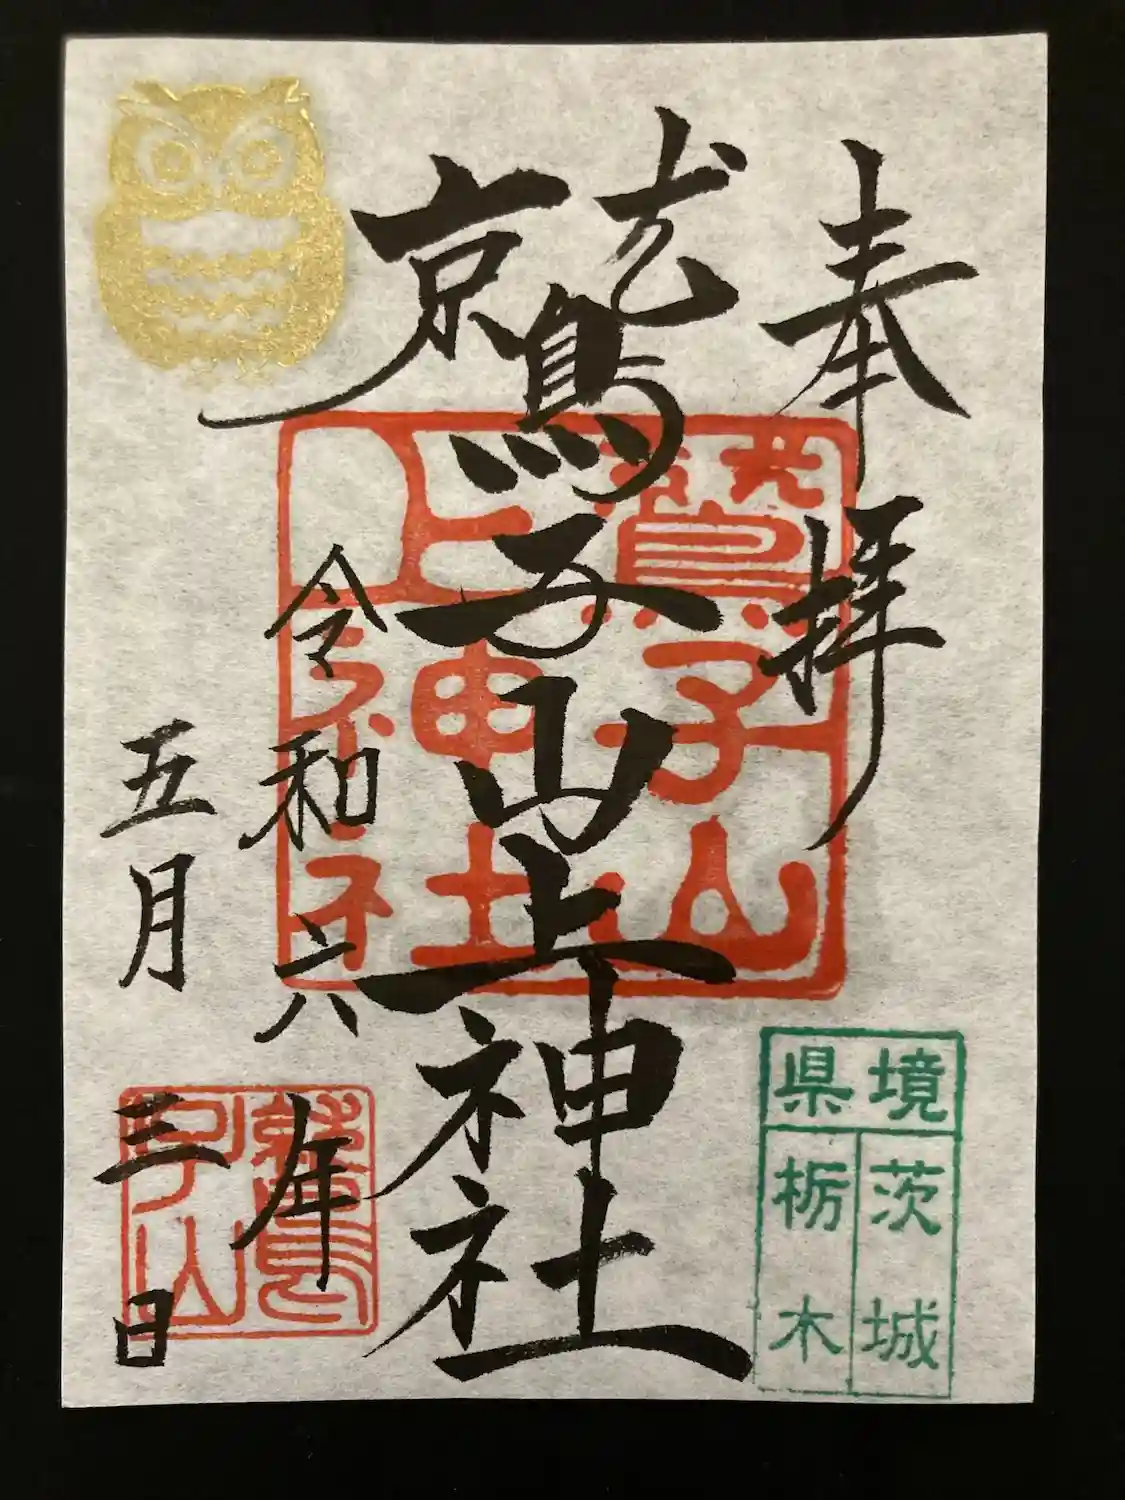 奉拝
鷲子山上神社
令和六年
五月三日
鷲子山
上神社
鷲子山
県境
茨城
栃木